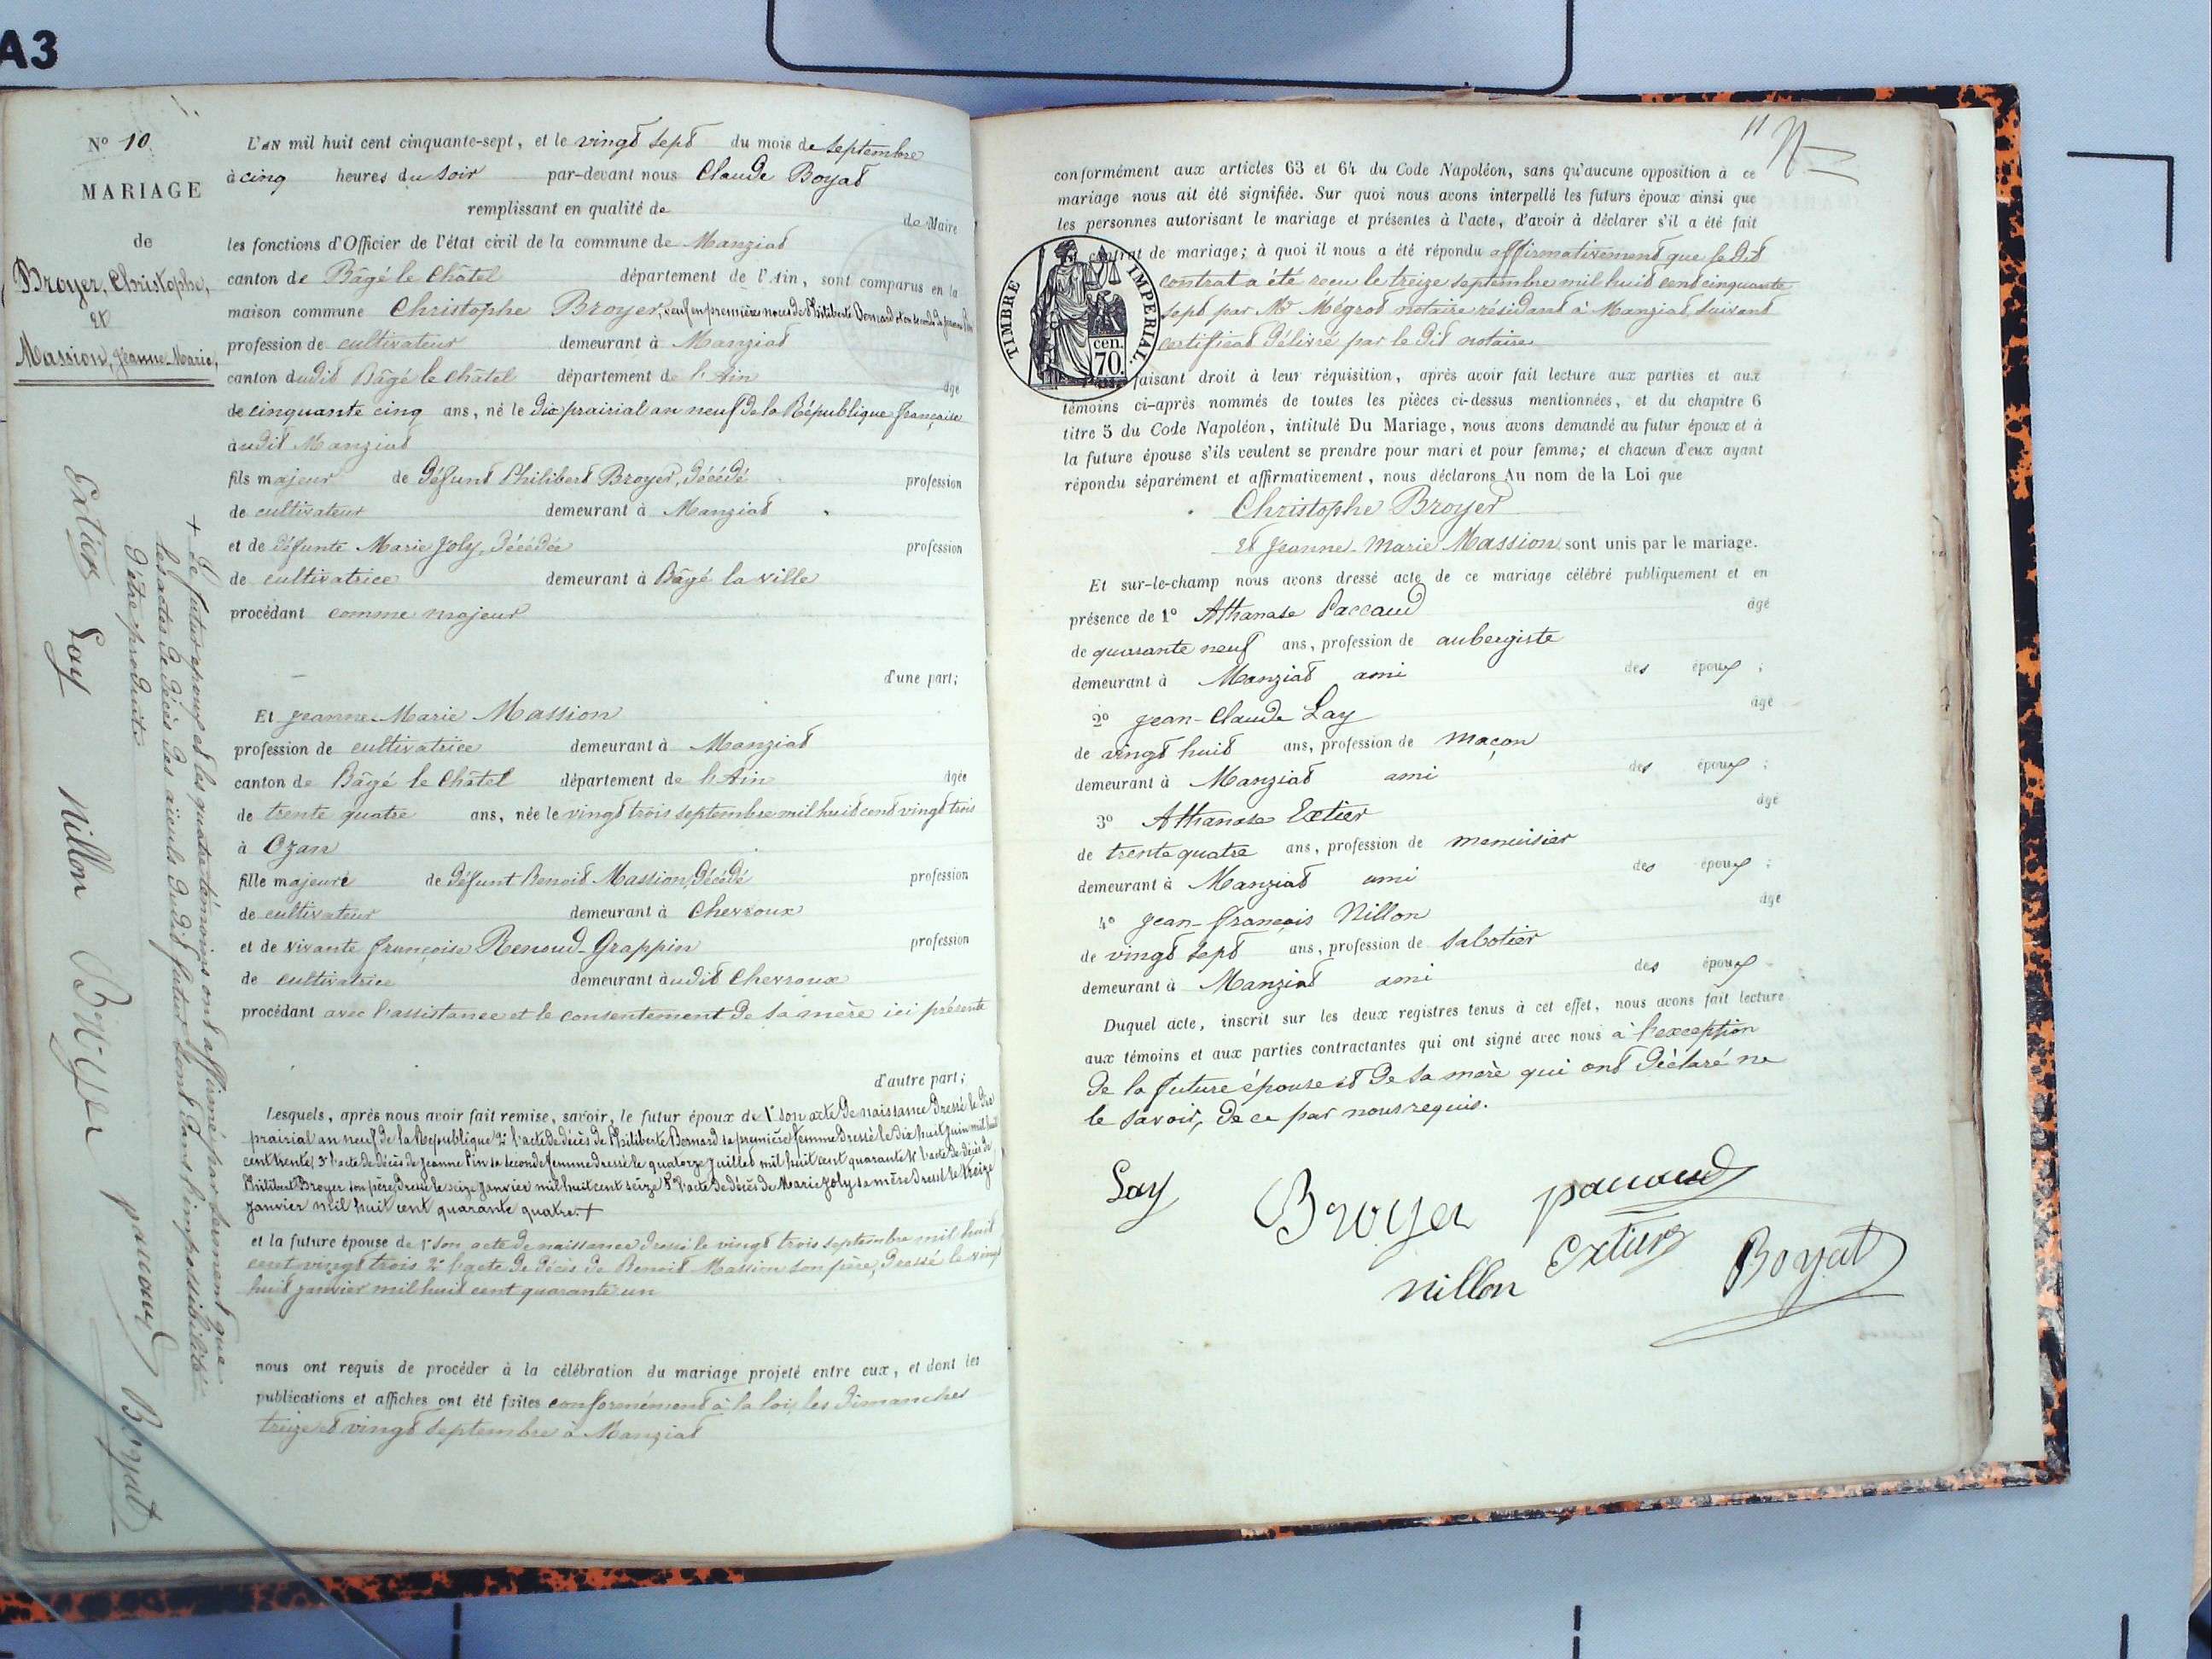 A3
N° 10
MARIAGE
de
Broyer, Christophe,
et
Massion, Jeanne-Marie,
L'AN mil huit cent cinquante-sept, et le vingt sept du mois de septembre
à cinq heures du soir par-devant nous Claude Boyat
remplissant en qualité de
de Maire
les fonctions d'Officier de l'état civil de la commune de Manziat
canton de Bâgé le Châtel département de l'Ain, sont comparus en la
maison commune Christophe Broyer, veuf en premières noces de Philiberte Bernard et en seconde de Jeanne Pin
profession de cultivateur demeurant à Manziat
canton dudit Bâgé le Châtel département de l'Ain âgé
de cinquante cinq ans, né le dix prairial an neuf de la République française
àudit Manziat
fils majeur de défunt Philibert Broyer, décédé profession
de cultivateur demeurant à Manziat
et de défunte Marie Joly, décédée profession
de cultivatrice demeurant à Bâgé la ville
procédant comme majeur
d'une part;
Et Jeanne-Marie Massion
profession de cultivatrice demeurant à Manziat
canton de Bâgé le Châtel département de l'Ain âgée
de trente quatre ans, née le vingt trois septembre mil huit cent vingt trois
à Ozan
fille majeure de défunt Benoit Massion, décédé profession
de cultivateur demeurant à Chevroux
et de vivante françoise Renoud-Grappin profession
de cultivatrice demeurant àudit Chevroux
procédant avec l'assistance et le consentement de sa mère ici présente
d'autre part;
Lesquels, après nous avoir fait remise, savoir, le futur époux de 1° son acte de naissance dressé le dix
prairial an neuf de la République 2° l'acte de décès de Philiberte Bernard sa première femme dressé le dix huit juin mil huit
cent trente, 3° l'acte de décès de Jeanne Pin sa seconde femme dressé le quatorze juillet mil huit cent quarante 4° l'acte de décès de
Philibert Broyer son père, dressé le seize janvier mil huit cent seize 5° l'acte de décès de Marie Joly sa mère dressé le treize
janvier mil huit cent quarante quatre. +
et la future épouse de 1° son acte de naissance dressé le vingt trois septembre mil huit
cent vingt trois 2° l'acte de décès de Benoit Massion son père, dressé le vingt
huit janvier mil huit cent quarante un
nous ont requis de procéder à la célébration du mariage projeté entre eux, et dont les
publications et affiches ont été faites conformément à la loi, les dimanches
treize et vingt septembre à Manziat
+ Le futur époux et les quatre témoins ont affirmé par serment que
les actes de décès des aieuls dudit futur sont dans l'impossibilité
d'être produits
Extier Lay Nillon Broyer paccaud Boyat
11
conformément aux articles 63 et 64 du Code Napoléon, sans qu'aucune opposition à ce
mariage nous ait été signifiée. Sur quoi nous avons interpellé les futurs époux ainsi que
les personnes autorisant le mariage et présentes à l'acte, d'avoir à déclarer s'il a été fait
contrat de mariage; à quoi il nous a été répondu affirmativement que ledit
contrat a été reçu le treize septembre mil huit cent cinquante
sept par Me Mégrat notaire résidant à Manziat, suivant
certificat délivré par le dit notaire
TIMBRE IMPERIAL.
cen.
70.
faisant droit à leur réquisition, après avoir fait lecture aux parties et aux
témoins ci-après nommés de toutes les pièces ci-dessus mentionnées, et du chapitre 6
titre 5 du Code Napoléon, intitulé Du Mariage, nous avons demandé au futur époux et à
la future épouse s'ils veulent se prendre pour mari et pour femme; et chacun d'eux ayant
répondu séparément et affirmativement, nous déclarons Au nom de la Loi que
Christophe Broyer
Et Jeanne-Marie Massion sont unis par le mariage.
Et sur-le-champ nous avons dressé acte de ce mariage célébré publiquement et en
présence de 1° Athanase Paccaud âgé
de quarante neuf ans, profession de aubergiste
demeurant à Manziat ami des époux ;
2° Jean-Claude Lay âgé
de vingt huit ans, profession de maçon
demeurant à Manziat ami des époux ;
3° Athanase Extier âgé
de trente quatre ans, profession de menuisier
demeurant à Manziat ami des époux ;
4° Jean-françois Nillon âgé
de vingt sept ans, profession de sabotier
demeurant à Manziat ami des époux
Duquel acte, inscrit sur les deux registres tenus à cet effet, nous avons fait lecture
aux témoins et aux parties contractantes qui ont signé avec nous à l'exception
de la future épouse et de sa mère qui ont déclaré ne
le savoir, de ce par nous requis.
Lay Broyer paccaud
nillon Extier Boyat